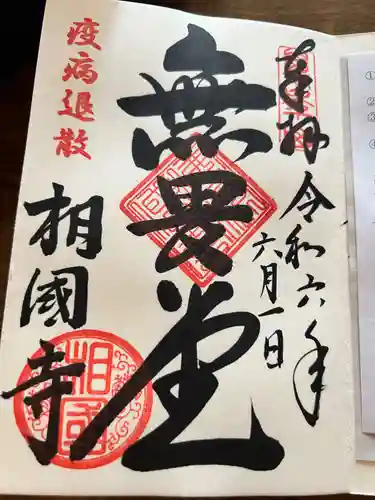 奉拝
令和六年
六月一日
無畏堂
疫病退散
相國寺
①
②
③
④